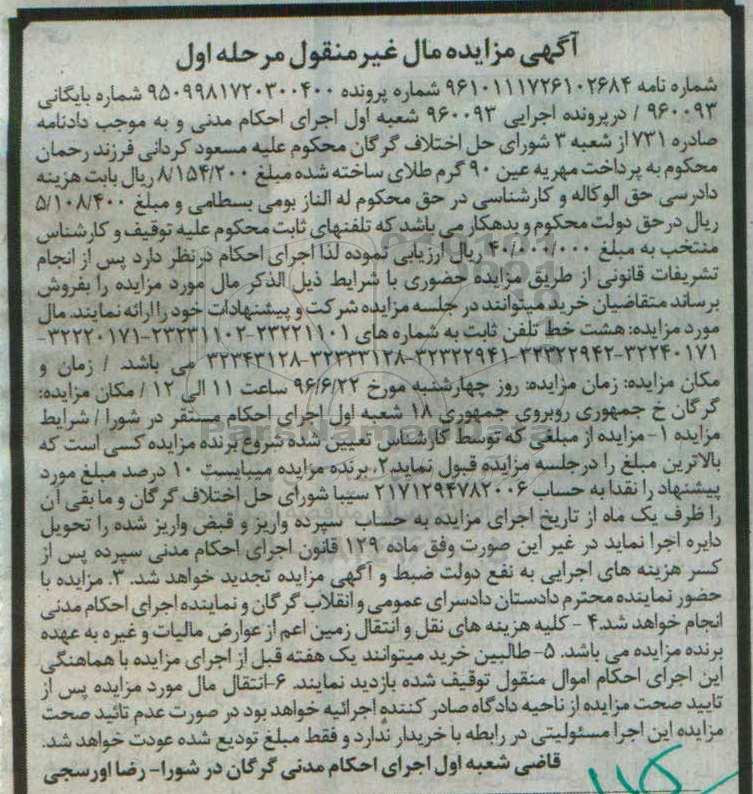 آگهی مزایده مال غیر منقول مرحله اول
شماره نامه ۹۶۱۰۱۱۱۷۲۶۱۰۲۶۸۴ شماره پرونده ۹۵۰۹۹۸۱۷۲۰۳۰۰۴۰۰ شماره بایگانی
۹۶۰۰۹۳ / درپرونده اجرایی ۹۶۰۰۹۳ شعبه اول اجرای احکام مدنی و به موجب دادنامه
صادره ۷۳۱ از شعبه ۳ شورای حل اختلاف گرگان محکوم علیه مسعود کردانی فرزند رحمان
محکوم به پرداخت مهریه عین ۹۰ گرم طلای ساخته شده مبلغ ۸/۱۵۴/۲۰۰ ریال بابت هزینه
دادرسی حق الوکاله و کارشناسی در حق محکوم له الناز بومی بسطامی و مبلغ ۵/۱۰۸/۴۰۰
ریال در حق دولت محکوم و بدهکار می باشد که تلفنهای ثابت محکوم علیه توقیف و کارشناس
منتخب به مبلغ ۴۰/۰۰۰/۰۰۰ ریال ارزیابی نموده لذا اجرای احکام درنظر دارد پس از انجام
تشریفات قانونی از طریق مزایده حضوری با شرایط ذیل الذکر مال مورد مزایده را بفروش
برساند متقاضیان خرید میتوانند در جلسه مزایده شرکت و پیشنهادات خود را ارائه نمایند. مال
مورد مزایده: هشت خط تلفن ثابت به شماره های ۲۳۲۲۱۱۰۱-۲۳۲۳۱۱۰۲-۳۲۲۲۰۱۷۱-
۳۲۲۴۰۱۷۱-۳۲۳۲۲۹۴۲-۳۲۳۲۲۹۴۱-۳۲۳۳۳۱۲۸-۳۲۳۴۳۱۲۸ می باشد. / زمان و
مکان مزایده: زمان مزایده: روز چهارشنبه مورخ ۹۶/۶/۲۲ ساعت ۱۱ الی ۱۲ / مکان مزایده:
گرگان خ جمهوری روبروی جمهوری ۱۸ شعبه اول اجرای احکام مستقر در شورا / شرایط
مزایده ۱- مزایده از مبلغی که توسط کارشناس تعیین شده شروع برنده مزایده کسی است که
بالاترین مبلغ را درجلسه مزایده قبول نماید.۲. برنده مزایده میبایست ۱۰ درصد مبلغ مورد
پیشنهاد را نقدا به حساب ۲۱۷۱۲۹۴۷۸۲۰۰۶ سیبا شورای حل اختلاف گرگان و ما بقی آن
را ظرف یک ماه از تاریخ اجرای مزایده به حساب سپرده واریز و قبض واریز شده را تحویل
دایره اجرا نماید در غیر این صورت وفق ماده ۱۲۹ قانون اجرای احکام مدنی سپرده پس از
کسر هزینه های اجرایی به نفع دولت ضبط و آگهی مزایده تجدید خواهد شد. ۳. مزایده با
حضور نماینده محترم دادستان دادسرای عمومی و انقلاب گرگان و نماینده اجرای احکام مدنی
انجام خواهد شد.۴ - کلیه هزینه های نقل و انتقال زمین اعم از عوارض مالیات و غیره به عهده
برنده مزایده می باشد. ۵- طالبین خرید میتوانند یک هفته قبل از اجرای مزایده با هماهنگی
این اجرای احکام اموال منقول توقیف شده بازدید نمایند. ۶-انتقال مال مورد مزایده پس از
تایید صحت مزایده از ناحیه دادگاه صادر کننده اجرائیه خواهد بود در صورت عدم تائید صحت
مزایده این اجرا مسئولیتی در رابطه با خریدار ندارد و فقط مبلغ تودیع شده عودت خواهد شد.
قاضی شعبه اول اجرای احکام مدنی گرگان در شورا- رضا اورسجی